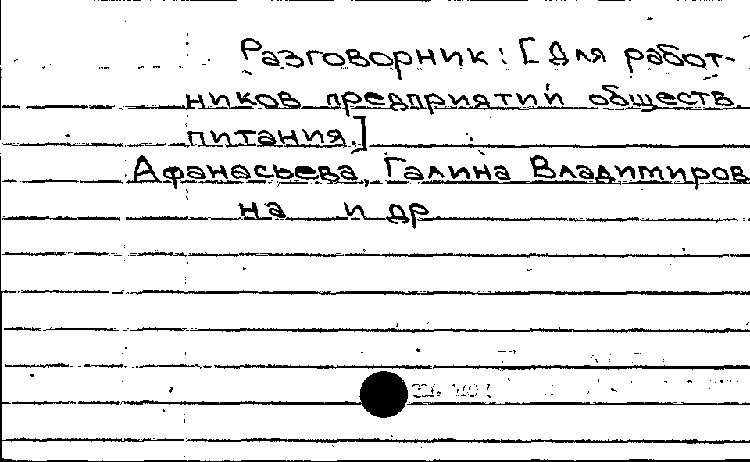 Разговорник: [Для работ-
ников предприятий обществ.
питания.]
Афанасьева, Галина Владимиров
на и др.